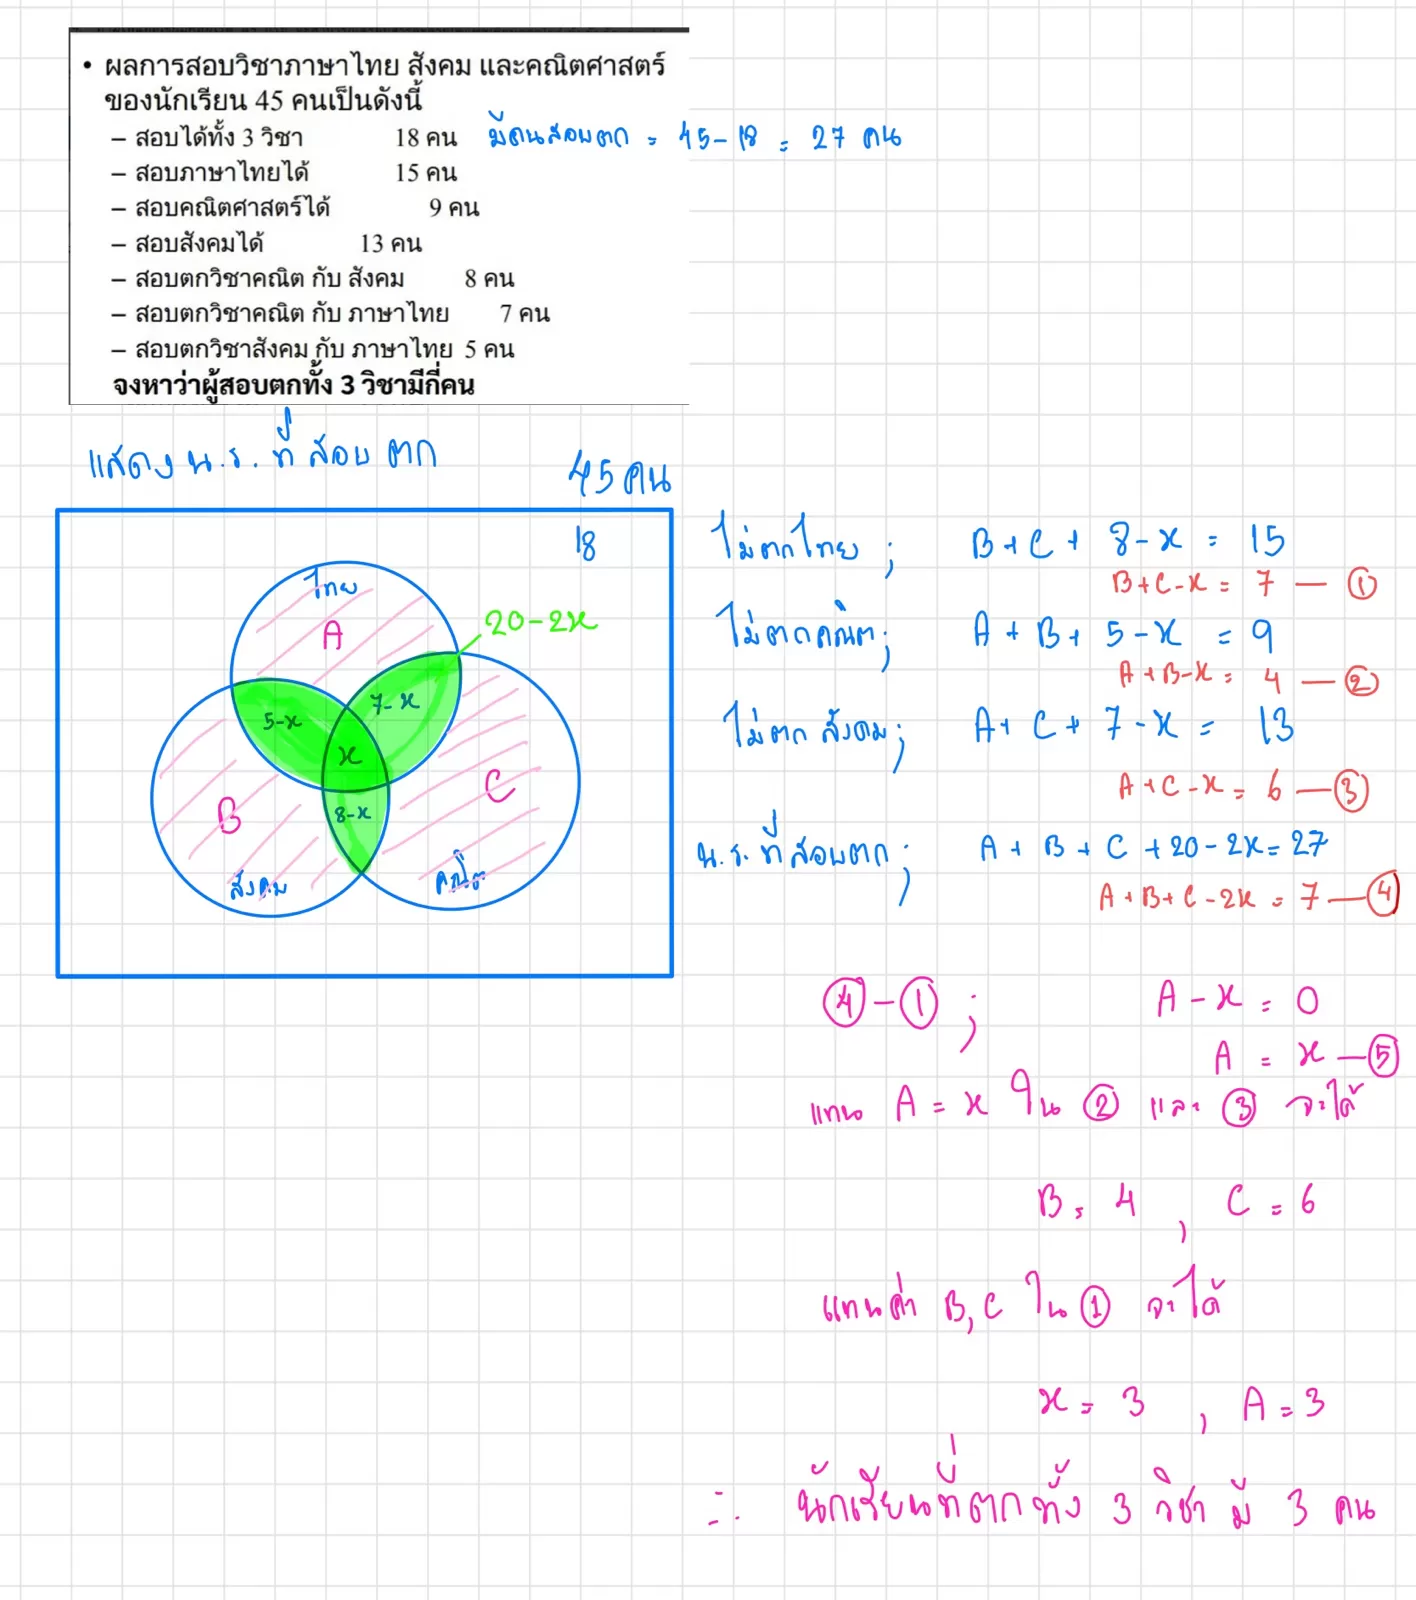 • ผลการสอบวิชาภาษาไทย สังคม และคณิตศาสตร์
ของนักเรียน 45 คนเป็นดังนี้
– สอบได้ทั้ง 3 วิชา 18 คน มีคนสอบตก = 45-18 = 27 คน
– สอบภาษาไทยได้ 15 คน
– สอบคณิตศาสตร์ได้ 9 คน
– สอบสังคมได้ 13 คน
– สอบตกวิชาคณิต กับ สังคม 8 คน
– สอบตกวิชาคณิต กับ ภาษาไทย 7 คน
– สอบตกวิชาสังคม กับ ภาษาไทย 5 คน
จงหาว่าผู้สอบตกทั้ง 3 วิชามีกี่คน
แสดง น.ร. ที่สอบตก
45 คน
18
ไทย
A
20-2x
5-x
7-x
x
B
C
8-x
สังคม
คณิต
ไม่ตกไทย ; B+C+ 8-x = 15
B+C-x = 7 — ①
ไม่ตกคณิต; A+B+ 5-x = 9
A+B-x = 4 — ②
ไม่ตกสังคม; A+C+7-x = 13
A+C-x = 6 — ③
น.ร. ที่สอบตก; A+B+C+20-2x=27
A+B+C-2x = 7 — ④
④-① ; A-x = 0
A = x — ⑤
แทน A = x ใน ② และ ③ จะได้
B = 4 , C = 6
แทนค่า B,C ใน ① จะได้
x = 3 , A = 3
∴ นักเรียนที่ตกทั้ง 3 วิชา มี 3 คน